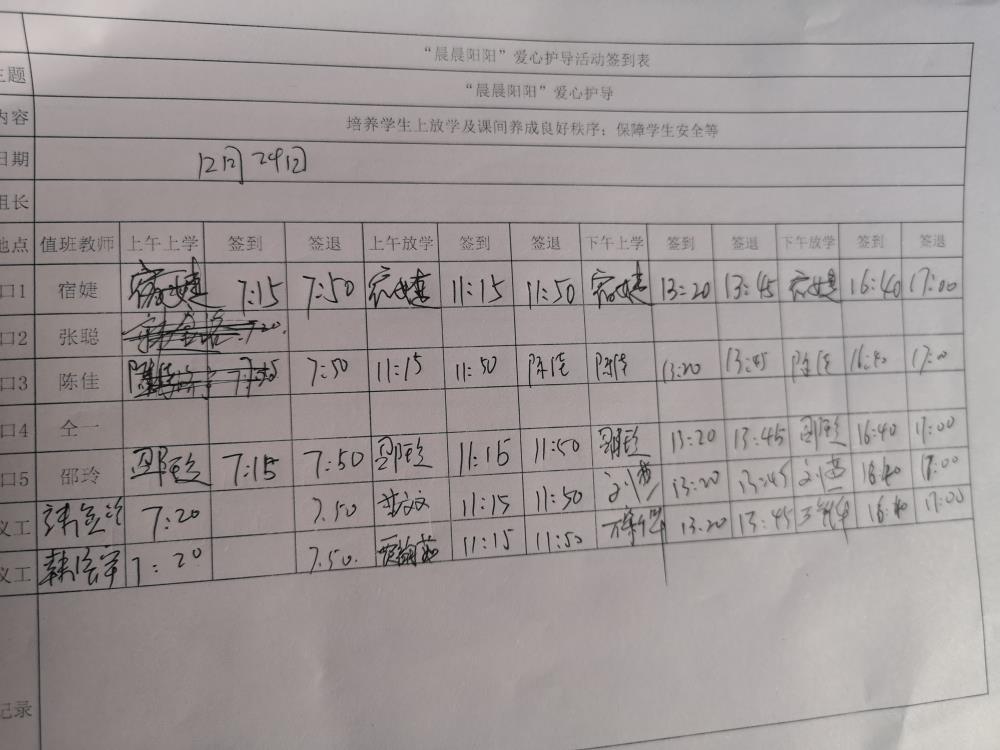 “晨晨阳阳”爱心护导活动签到表
主题 “晨晨阳阳”爱心护导
内容 培养学生上放学及课间养成良好秩序；保障学生安全等
日期 12月24日
组长
地点 值班教师 上午上学 签到 签退 上午放学 签到 签退 下午上学 签到 签退 下午放学 签到 签退
口1 宿婕 宿婕 7:15 7:50 宿婕 11:15 11:50 宿婕 13:20 13:45 宿婕 16:40 17:00
口2 张聪
口3 陈佳 7:50 11:15 11:50 陈佳 陈佳 13:20 13:45 陈佳 16:40 17:00
口4 全一
口5 邵玲 邵玲 7:15 7:50 邵玲 11:15 11:50 邵玲 13:20 13:45 邵玲 16:40 17:00
义工 7:20 7.50 11:15 11:50 13:20 13:45 16:40 17:00
义工 7:20 7.50. 11:15 11:50 13:20 13:45 16:40 17:00
记录